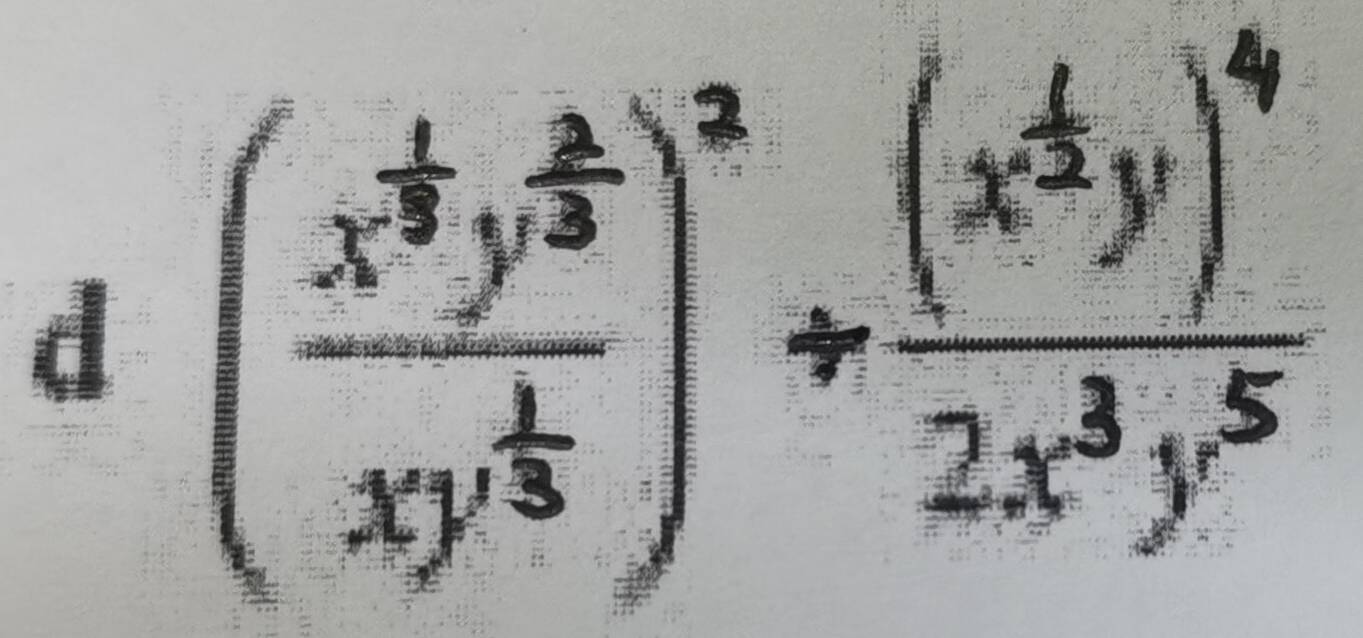 d $\left( \frac{x^{\frac{1}{3}} y^{\frac{2}{3}}}{x y^{\frac{1}{3}}} \right)^2 \div \frac{\left( x^{\frac{1}{2}} y \right)^4}{2x^3 y^5}$